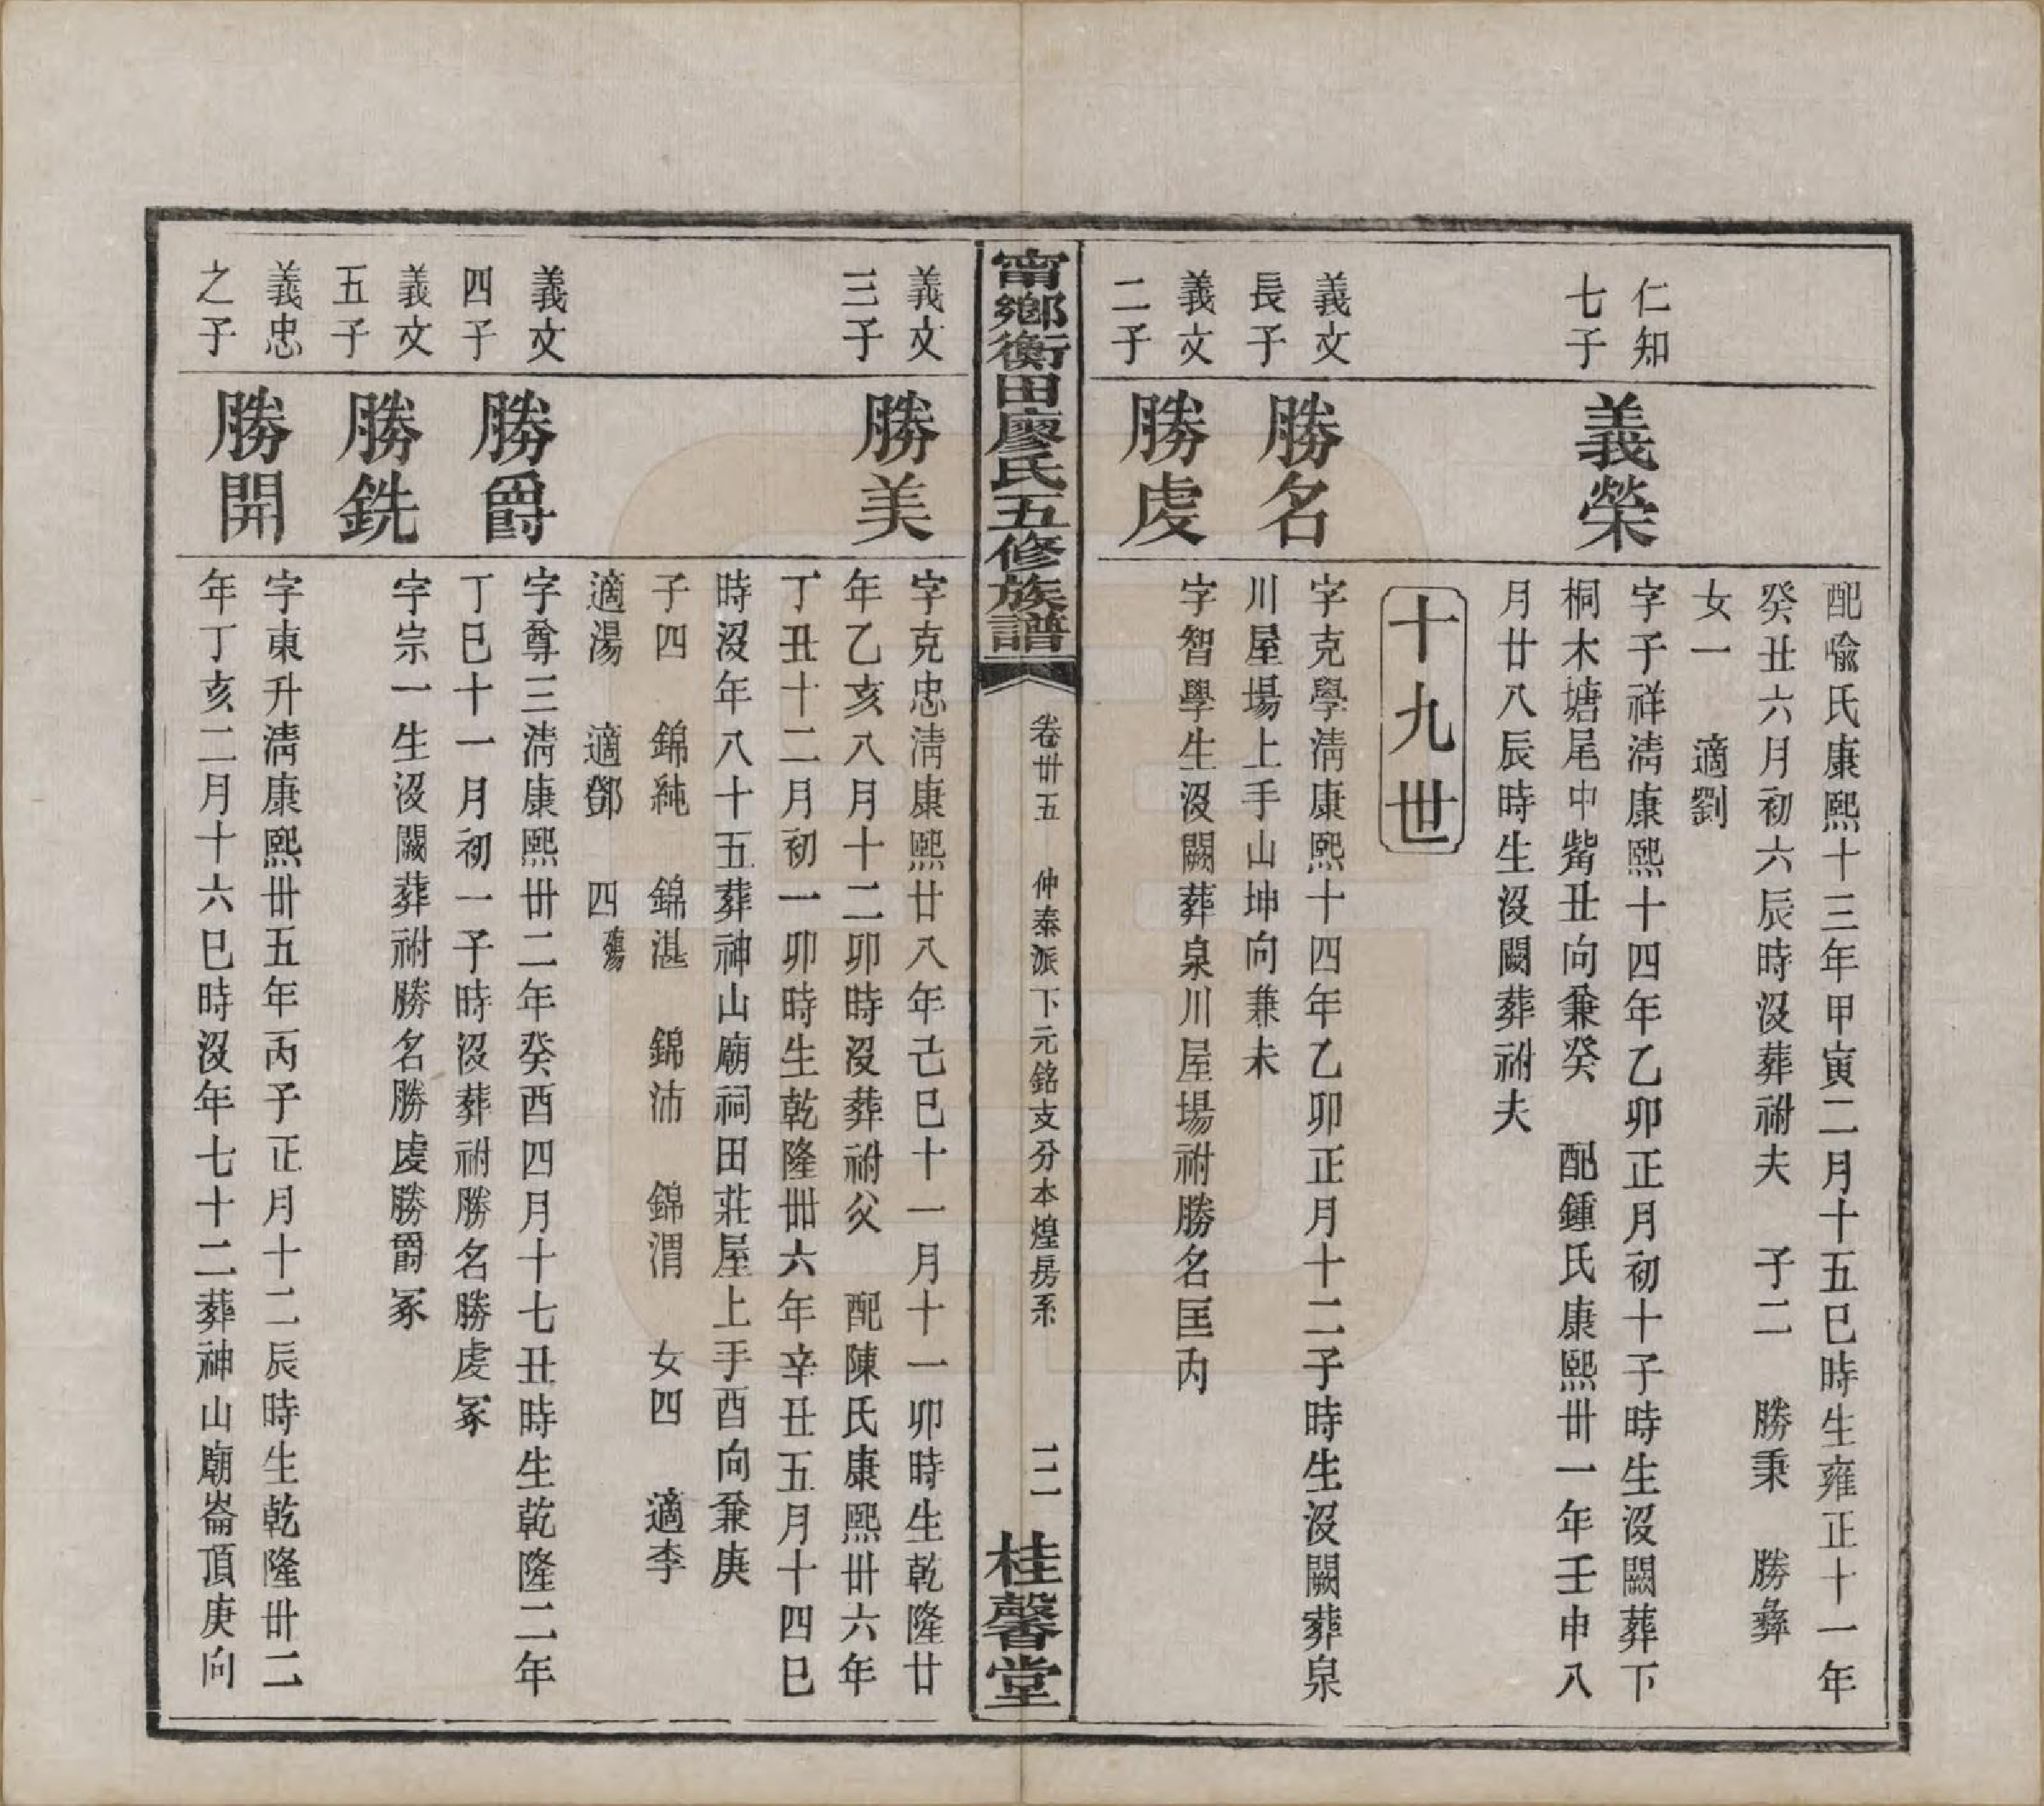 配喩氏康熙十三年甲寅二月十五巳時生雍正十一年
癸丑六月初六辰時沒葬祔夫　子二　勝秉　勝彝
女一　適劉
仁知
七子
義榮
字子祥淸康熙十四年乙卯正月初十子時生沒闕葬下
桐木塘尾中觜丑向兼癸　配鍾氏康熙卅一年壬申八
月廿八辰時生沒闕葬祔夫
十九世
義文
長子
勝名
字克學淸康熙十四年乙卯正月十二子時生沒闕葬泉
川屋場上手山坤向兼未
義文
二子
勝虔
字智學生沒闕葬泉川屋場祔勝名匡內
甯鄉衡田廖氏五修族譜
卷卅五　仲泰派下元銘支分本煌房系
二二
桂馨堂
義文
三子
勝美
字克忠淸康熙廿八年己巳十一月十一卯時生乾隆廿
年乙亥八月十二卯時沒葬祔父　配陳氏康熙卅六年
丁丑十二月初一卯時生乾隆卌六年辛丑五月十四巳
時沒年八十五葬神山廟祠田莊屋上手酉向兼庚
子四　錦純　錦湛　錦沛　錦渭　女四　適李
適湯　適鄧　四殤
義文
四子
勝爵
字尊三淸康熙卅二年癸酉四月十七丑時生乾隆二年
丁巳十一月初一子時沒葬祔勝名勝虔冢
義文
五子
勝銑
字宗一生沒闕葬祔勝名勝虔勝爵冢
義忠
之子
勝開
字東升淸康熙卅五年丙子正月十二辰時生乾隆卅二
年丁亥二月十六巳時沒年七十二葬神山廟崙頂庚向